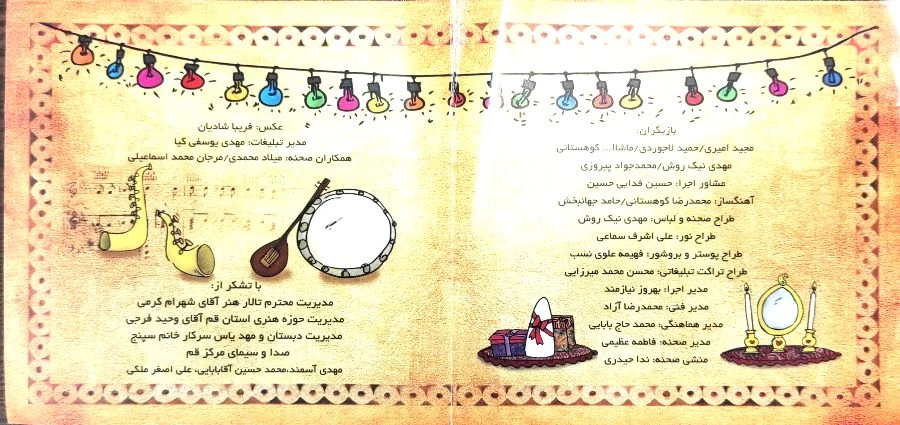 بازیگران:
مجید امیری/حمید لاجوردی/ماشاا... کوهستانی
مهدی نیک روش/محمدجواد پیروزی
مشاور اجرا: حسین فدایی حسین
آهنگساز: محمدرضا کوهستانی/حامد جهانبخش
طراح صحنه و لباس: مهدی نیک روش
طراح نور: علی اشرف سماعی
طراح پوستر و بروشور: فهیمه علوی نسب
طراح تراکت تبلیغاتی: محسن محمد میرزایی
مدیر اجرا: بهروز نیازمند
مدیر فنی: محمدرضا آزاد
مدیر هماهنگی: محمد حاج بابایی
مدیر صحنه: فاطمه عظیمی
منشی صحنه: ندا حیدری
عکس: فریبا شادیان
مدیر تبلیغات: مهدی یوسفی کیا
همکاران صحنه: میلاد محمدی/مرجان محمد اسماعیلی
با تشکر از:
مدیریت محترم تالار هنر آقای شهرام کرمی
مدیریت حوزه هنری استان قم آقای وحید فرجی
مدیریت دبستان و مهد یاس سرکار خانم سپنج
صدا و سیمای مرکز قم
مهدی آسمند،محمد حسین آقابابایی، علی اصغر ملکی